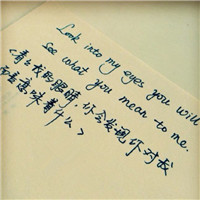 Look into my eyes you will
see what you mean to me.
《看着我的眼睛,你会发现你对我
而言意味着什么》